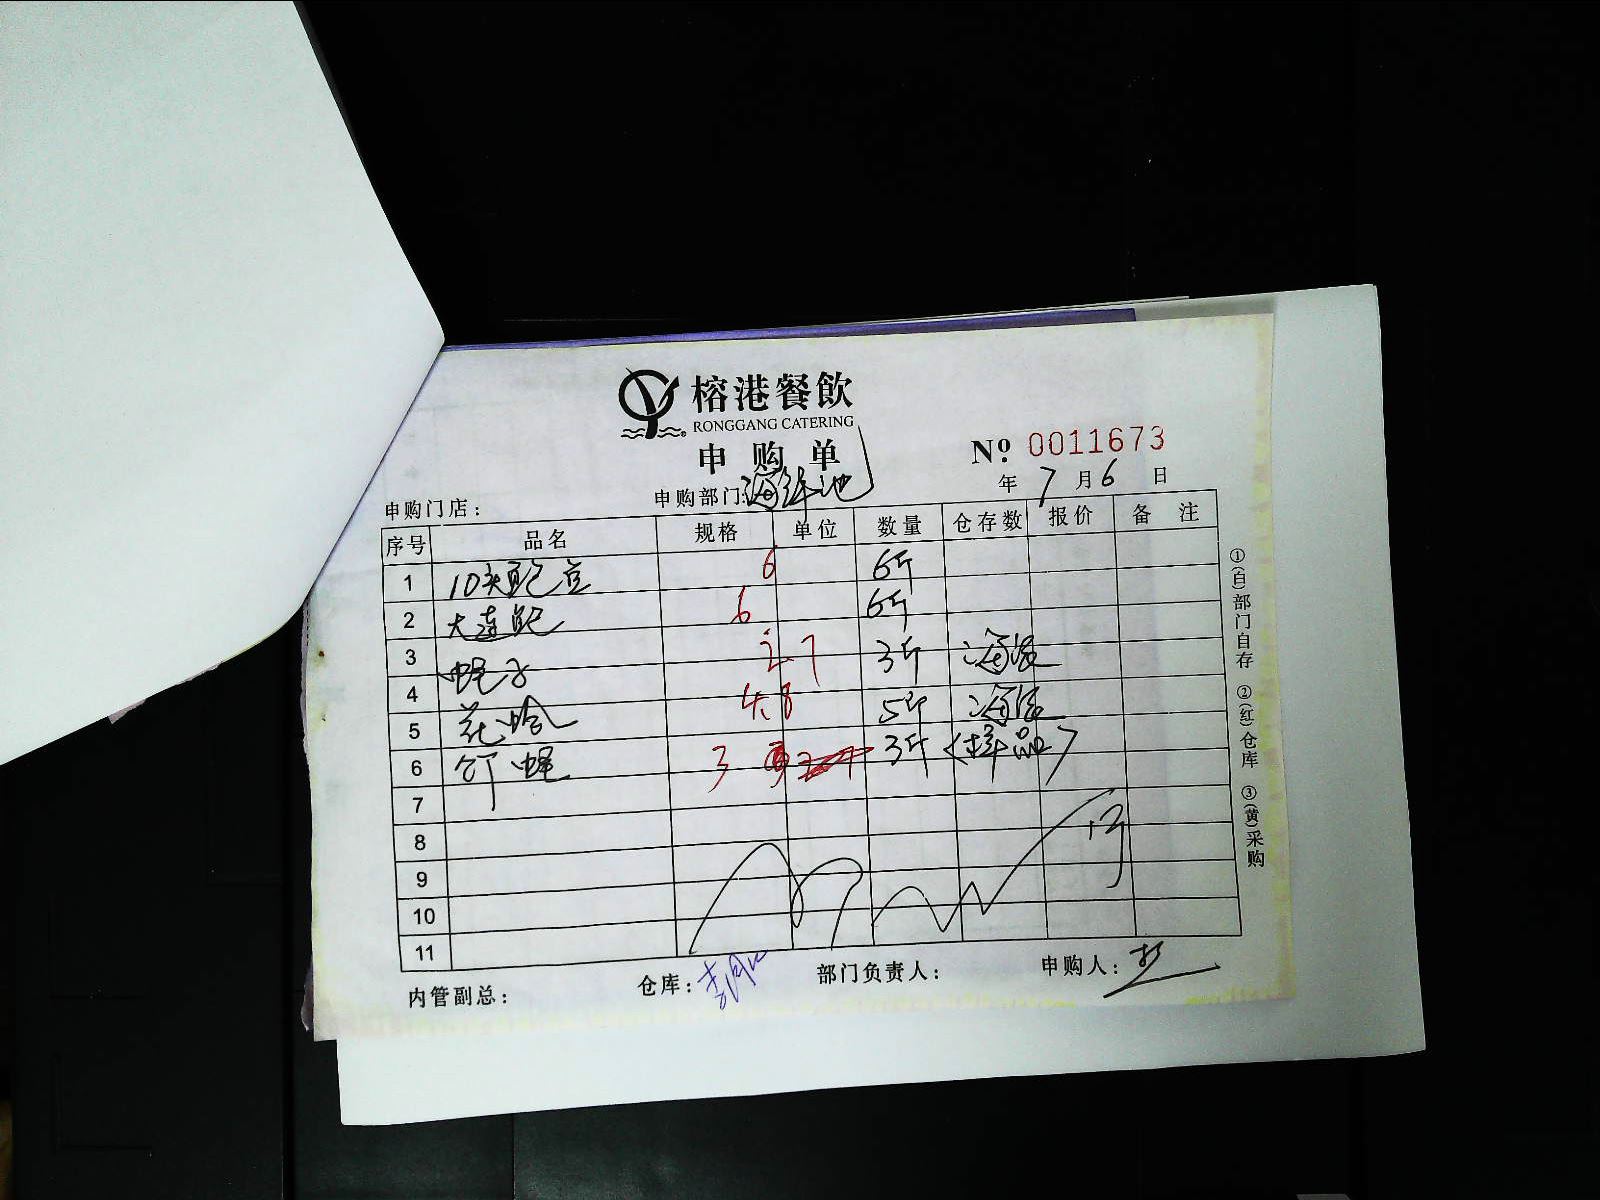 榕港餐飲
RONGGANG CATERING
申购单
No 0011673
年 7 月 6 日
申购门店： 申购部门：海鲜池
序号 品名 规格 单位 数量 仓存数 报价 备注
1 10头鲍 6 6斤
2 大连鲍 6 6斤
3 蛏子 2.7 3斤
4 花蛤 4.8 5斤
5
6 竹蛏 3 3斤 <样品>
7
8
9
10
11
内管副总： 仓库： 部门负责人： 申购人：
①(白)部门自存 ②(红)仓库 ③(黄)采购